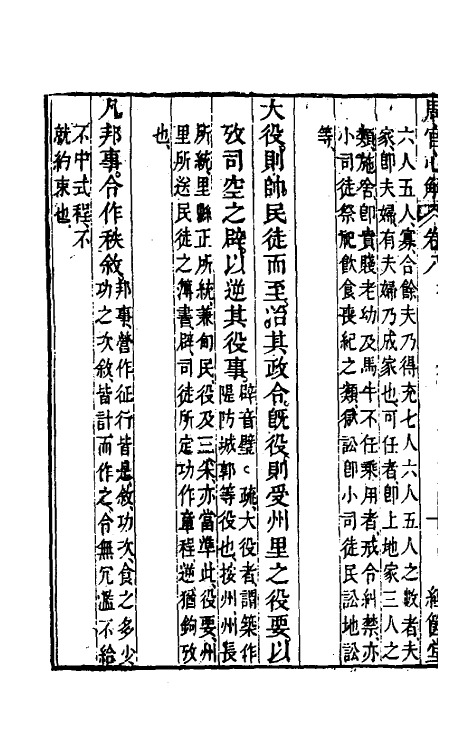 周官心解 卷八
六人五人寡合餘夫乃得充七人六人五人之數者夫
家卽夫婦有夫婦乃成家也可任者卽上地家三人之
類施舍卽貴賤老幼及馬牛不任乘用者戒令糾禁亦
小司徒祭祀飲食喪紀之類獄訟卽小司徒民訟地訟
等
大役則帥民徒而至治其政令旣役則受州里之役要以
攷司空之辟以逆其役事
辟音璧〻疏大役者謂築作
隄防城郭等役也按州州長
所統里縣正所統兼甸民役及三采亦當準此役要州
里所送民徒之簿書辟司徒所定功作章程逆猶鉤攷
也
凡邦事令作秩敘
邦事營作征行皆是敘功次食之多少
功之次敘皆計而作之令無冗濫不給
不中式程不
就約束也